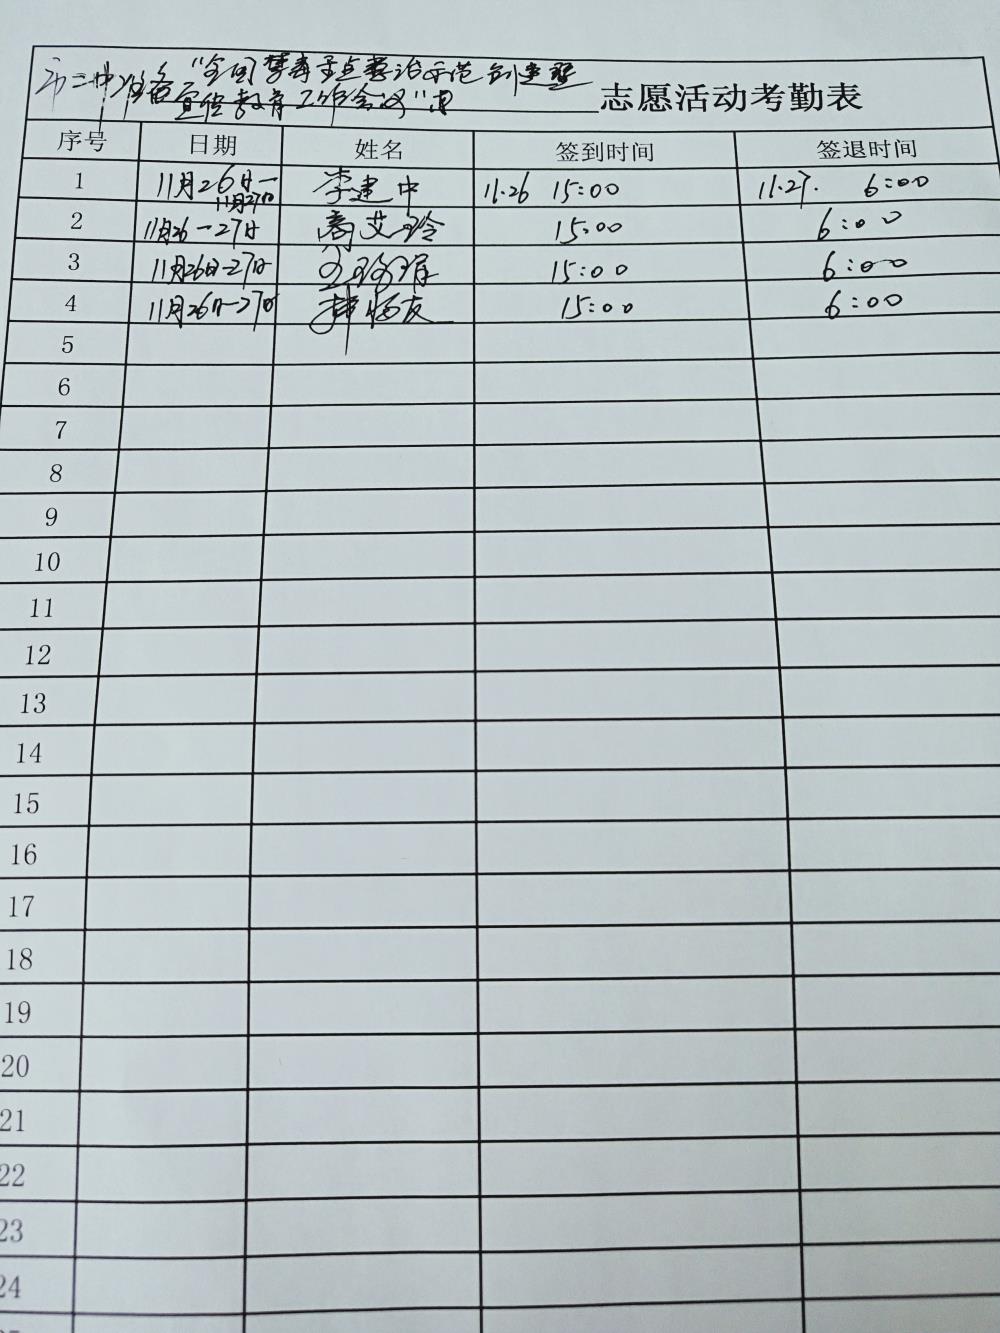 市二中准备"全国禁毒重点整治示范创建暨
宣传教育工作会议"用 志愿活动考勤表
序号 日期 姓名 签到时间 签退时间
1 11月26日— 11月27日 李建中 11.26 15:00 11.27. 6:00
2 11月26—27日 高艾玲 15:00 6:00
3 11月26日—27日 15:00 6:00
4 11月26日—27日 15:00 6:00
5
6
7
8
9
10
11
12
13
14
15
16
17
18
19
20
21
22
23
24